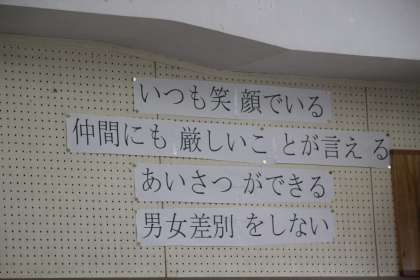 いつも笑顔でいる
仲間にも厳しいことが言える
あいさつができる
男女差別をしない